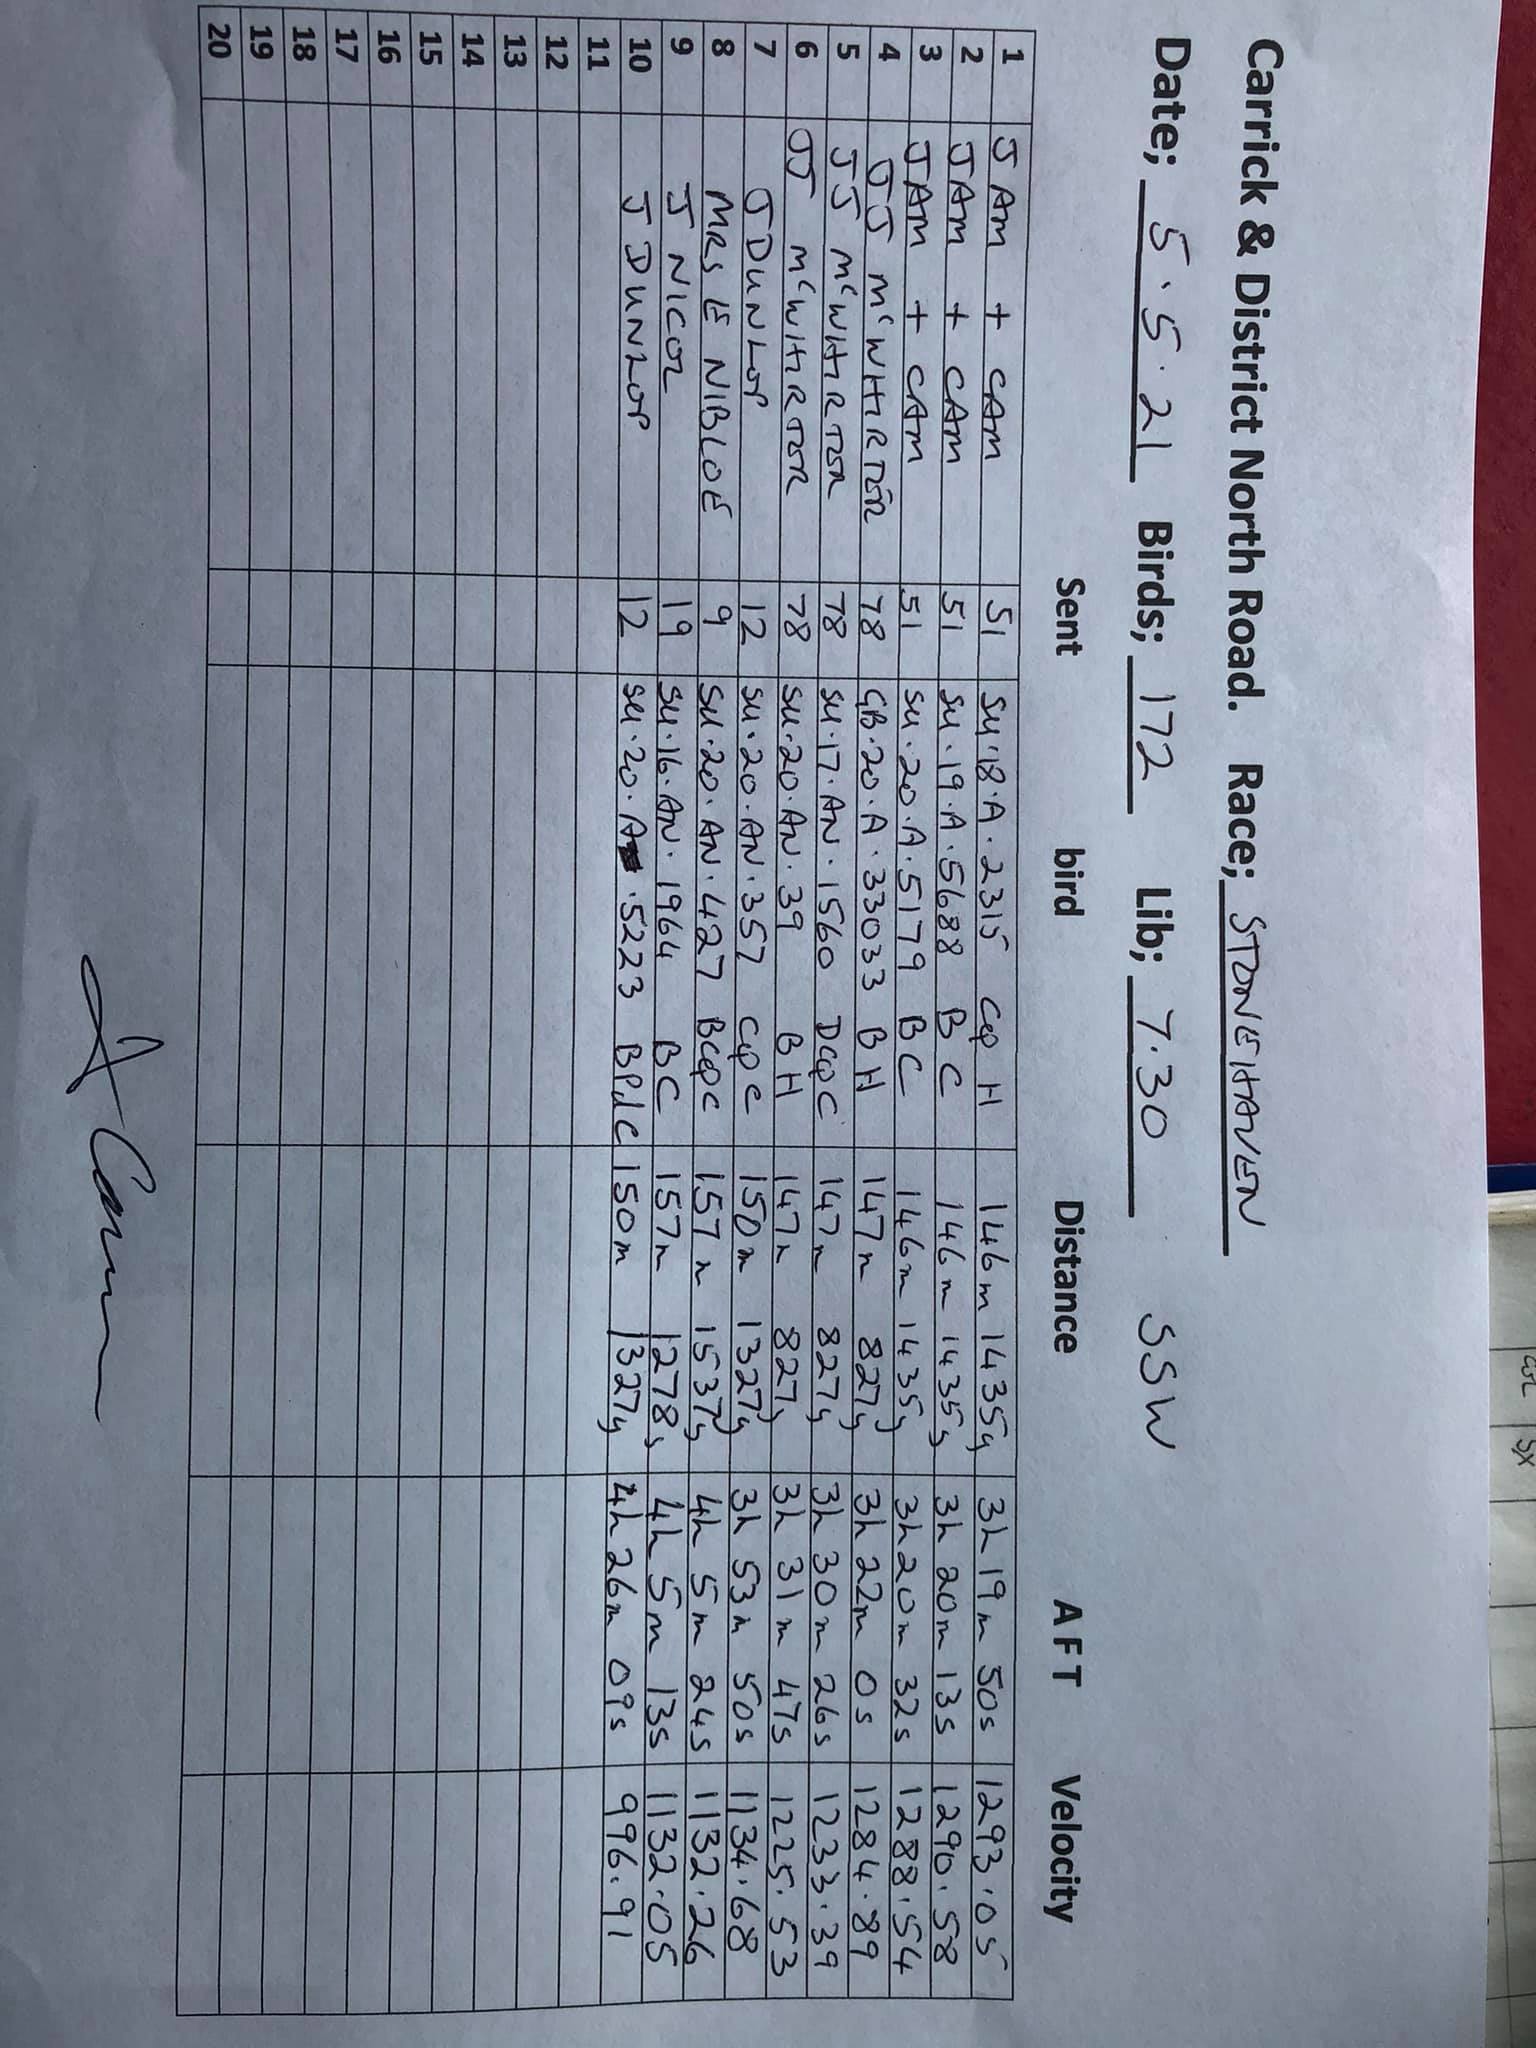 Carrick & District North Road. Race; STONEHAVEN
Date; 5.5.21 Birds; 172 Lib; 7.30 SSW
Sent bird Distance AFT Velocity
1 J AM + CAM 51 SU.18.A.2315 CQ H 146m 1435y 3h 19m 50s 1293.05
2 JAM + CAM 51 SU.19.A.5688 BC 146m 1435y 3h 20m 13s 1290.58
3 JAM + CAM 51 SU.20.A.5179 BC 146m 1435y 3h 20m 32s 1288.54
4 JJ McWHIRTER 78 GB.20.A.33033 BH 147m 827y 3h 22m 0s 1284.89
5 JJ McWHIRTER 78 SU.17.AN.1560 DCQC 147m 827y 3h 30m 26s 1233.39
6 JJ McWHIRTER 78 SU.20.AN.39 BH 147m 827y 3h 31m 47s 1225.53
7 J DUNLOP 12 SU.20.AN.357 CQC 150m 1327y 3h 53m 50s 1134.68
8 MRS E NIBLOE 9 SU.20.AN.427 BCQC 157m 1537y 4h 5m 24s 1132.26
9 J NICOL 19 SU.16.AN.1964 BC 157m 1278y 4h 5m 13s 1132.05
10 J DUNLOP 12 SU.20.A.5223 BPdC 150m 1327y 4h 26m 09s 996.91
11
12
13
14
15
16
17
18
19
20